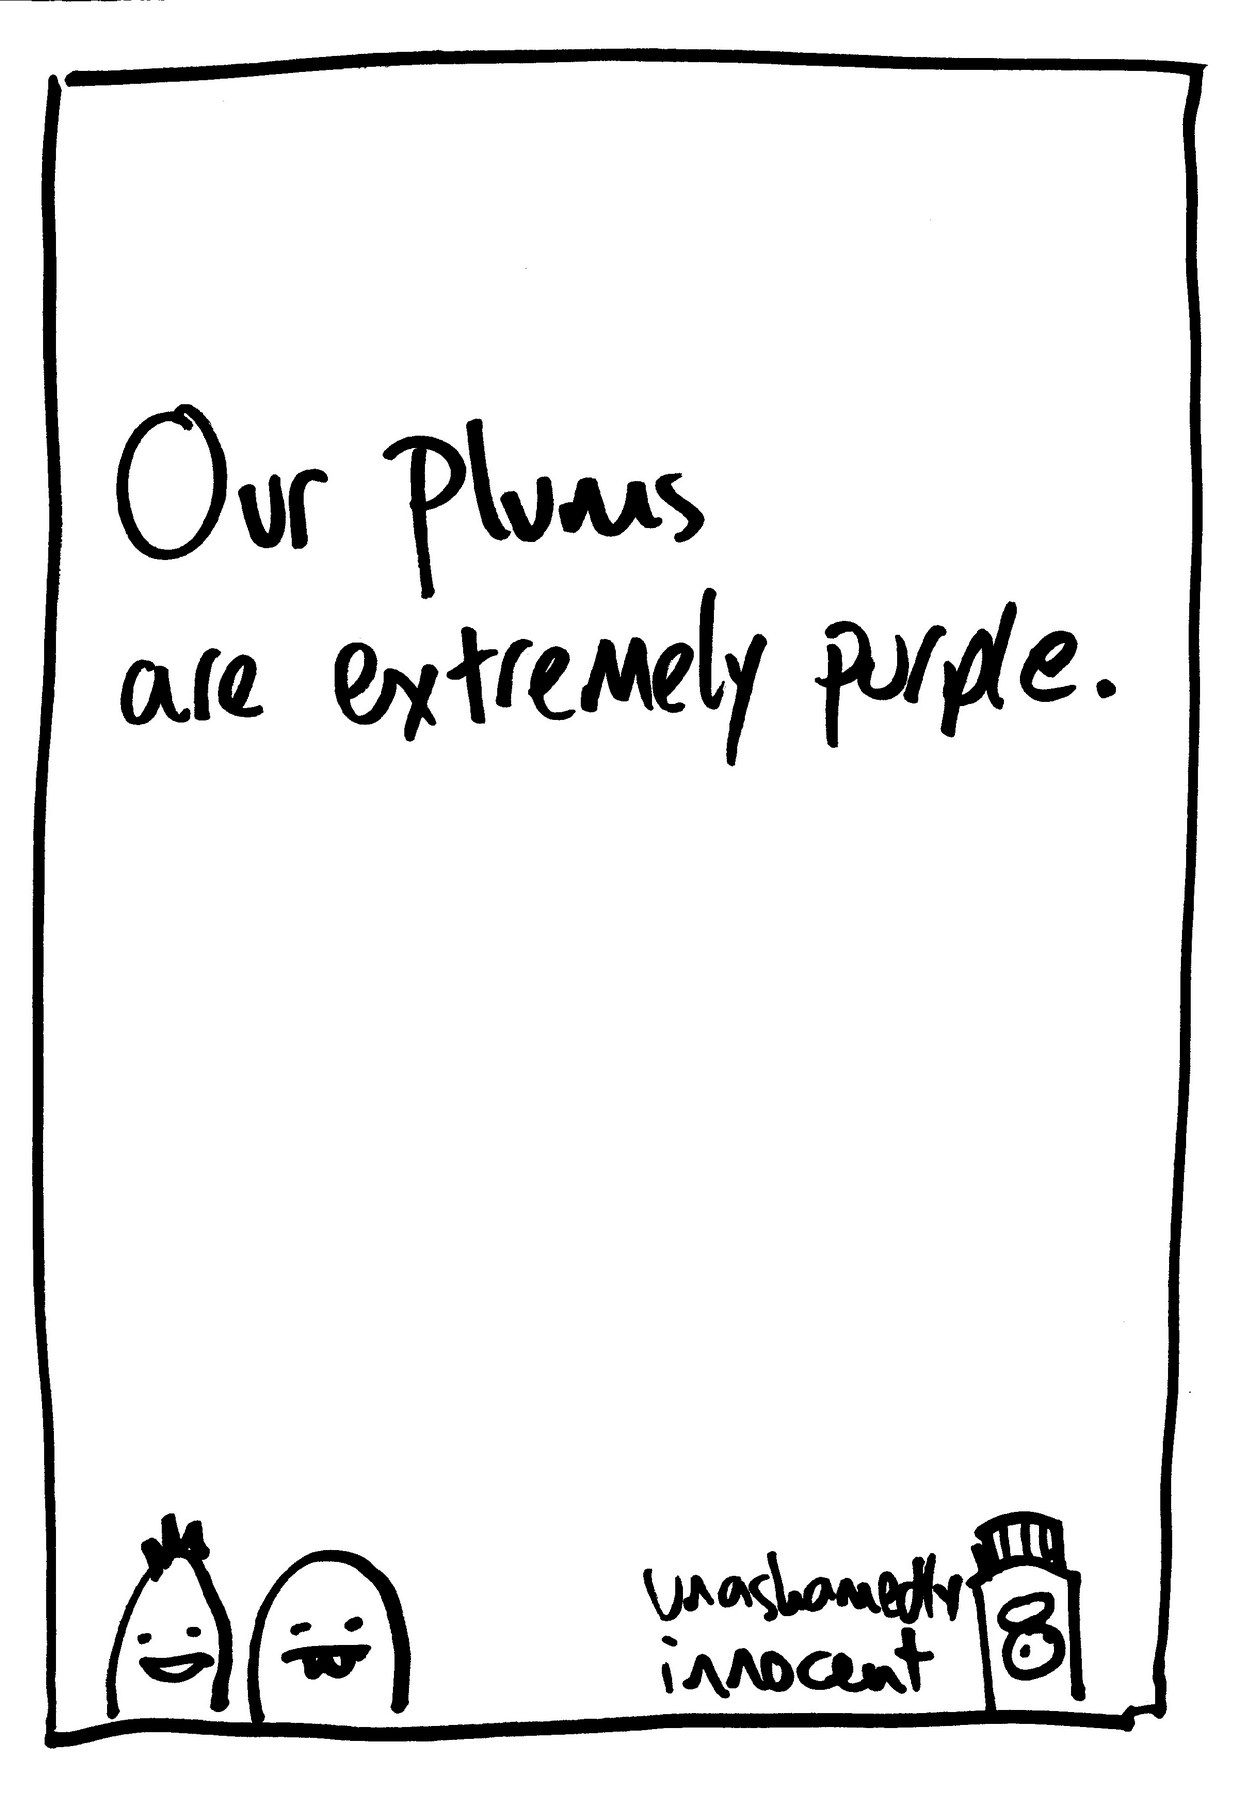 Our Plums
are extremely purple.
unashamedly
innocent